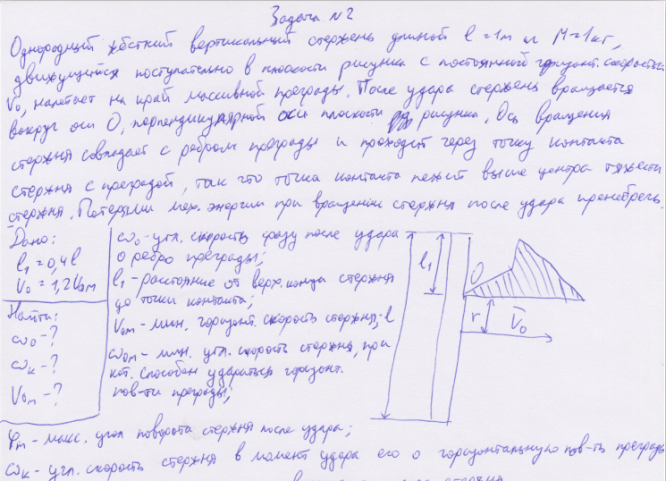 Задача №2
Однородный жёсткий вертикальный стержень длиной l=1м и M=1кг,
движущийся поступательно в плоскости рисунка с постоянной горизонт. скоростью
V₀, налетает на край массивной преграды. После удара стержень вращается
вокруг оси O, перпендикулярной оси плоскости рисунка. Ось вращения
стержня совпадает с ребром преграды и проходит через точку контакта
стержня с преградой, так что точка контакта лежит выше центра тяжести
стержня. Потерями мех. энергии при вращении стержня после удара пренебречь.
Дано:
l₁=0,4l
V₀=1,2V₀м
Найти:
ω₀-?
ωк-?
V₀м-?
ω₀-угл. скорость сразу после удара
о ребро преграды;
l₁-расстояние от верх. конца стержня
до точки контакта;
V₀м-мин. горизонт. скорость стержня;
ω₀м-мин. угл. скорость стержня, при
кот. способен удариться горизонт.
пов-ти преграды;
l₁
O
r
V₀
φм-макс. угол поворота стержня после удара;
ωк-угл. скорость стержня в момент удара его о горизонтальную пов-ть преграды